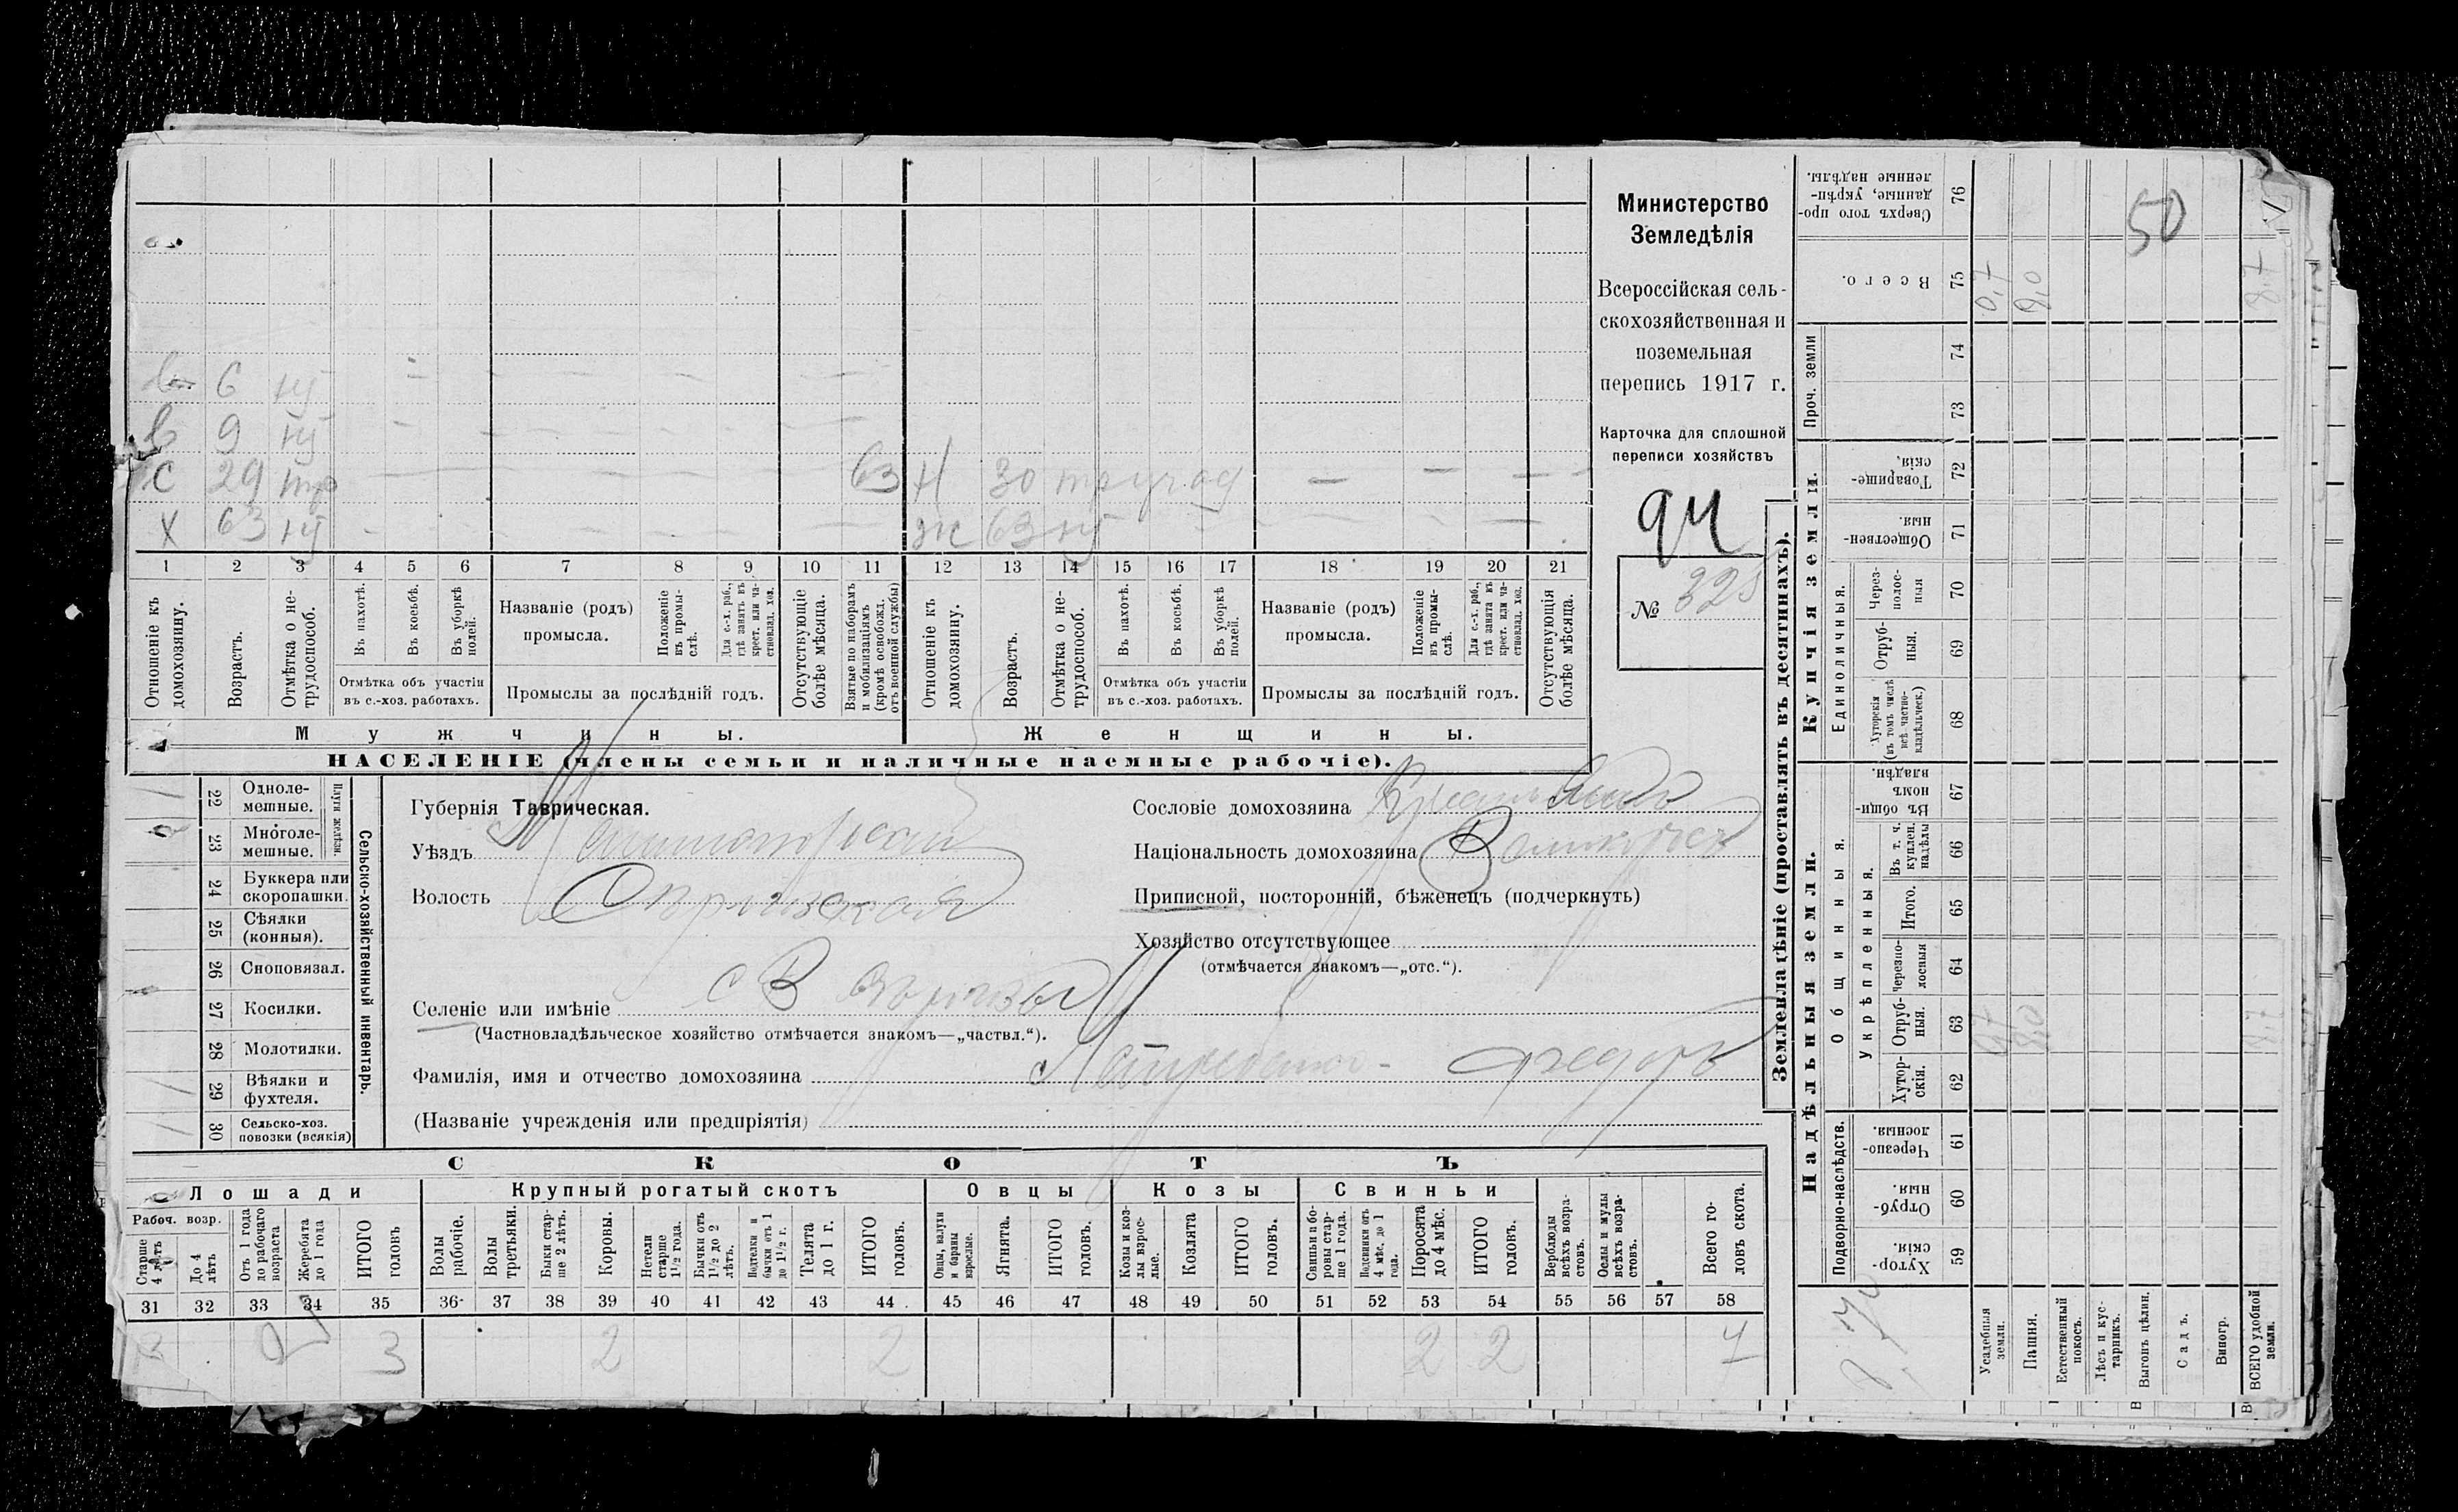 6 нт
в 9 нт
С 29 тр 63 Н 30
Х 63 нт ж 63 нт
1 2 3 4 5 6 7 8 9 10 11 12 13 14 15 16 17 18 19 20 21
Отношеніе къ домохозяину.
Возрастъ.
Отмѣтка о не-трудоспособ.
Въ пахотѣ.
Въ косьбѣ.
Въ уборкѣ полей.
Отмѣтка объ участіи
въ с.-хоз. работахъ.
Названіе (родъ)
промысла.
Положеніе въ промы-слѣ.
Для с.-х. раб., гдѣ занятъ въ крест. или ча-стновлад. хоз.
Промыслы за послѣдній годъ.
Отсутствующіе болѣе мѣсяца.
Взятые по наборамъ и мобилизаціямъ (кромѣ освобожд. отъ военной службы)
Отношеніе къ домохозяину.
Возрастъ.
Отмѣтка о не-трудоспособ.
Въ пахотѣ.
Въ косьбѣ.
Въ уборкѣ полей.
Отмѣтка объ участіи
въ с.-хоз. работахъ.
Названіе (родъ)
промысла.
Положеніе въ промы-слѣ.
Для с.-х. раб., гдѣ занята въ крест. или ча-стновлад. хоз.
Промыслы за послѣдній годъ.
Отсутствующія болѣе мѣсяца.
Мужчины. Женщины.
НАСЕЛЕНІЕ (члены семьи и наличные наемные рабочіе).
Министерство
Земледѣлія
Всероссійская сель-
скохозяйственная и
поземельная
перепись 1917 г.
Карточка для сплошной
переписи хозяйствъ
94
№ 325
Сельско-хозяйственный инвентарь.
Плуги желѣзн.
22 Одноле-мешные.
23 Многоле-мешные.
24 Буккера или скоропашки.
25 Сѣялки (конныя).
26 Сноповязал.
27 Косилки.
28 Молотилки.
29 Вѣялки и фухтеля.
30 Сельско-хоз. повозки (всякія)
Губернія Таврическая.
Уѣздъ
Волость
Селеніе или имѣніе
(Частновладѣльческое хозяйство отмѣчается знакомъ—„частвл.“).
Фамилія, имя и отчество домохозяина Федоръ
(Названіе учрежденія или предпріятія)
Сословіе домохозяина
Національность домохозяина Великорос
Приписной, посторонній, бѣженецъ (подчеркнуть)
Хозяйство отсутствующее
(отмѣчается знакомъ—„отс.“).
СКОТЪ
Лошади Крупный рогатый скотъ Овцы Козы Свиньи
Рабоч. возр.
Старше 4 лѣтъ
До 4 лѣтъ
Отъ 1 года до рабочаго возраста
Жеребята до 1 года
ИТОГО головъ
Волы рабочіе.
Волы третьяки.
Быки стар-ше 2 лѣтъ.
Коровы.
Нетели старше 1½ года.
Бычки отъ 1½ до 2 лѣтъ.
Подтелки и бычки отъ 1 до 1½ г.
Телята до 1 г.
ИТОГО головъ.
Овцы, валухи и бараны взрослые.
Ягнята.
ИТОГО головъ.
Козы и коз-лы взрос-лые.
Козлята
ИТОГО головъ.
Свиньи и бо-ровы стар-ше 1 года.
Подсвинки отъ 4 мѣс. до 1 года.
Поросята до 4 мѣс.
ИТОГО головъ.
Верблюды всѣхъ возра-стовъ.
Ослы и мулы всѣхъ возра-стовъ.
Всего го-ловъ скота.
31 32 33 34 35 36 37 38 39 40 41 42 43 44 45 46 47 48 49 50 51 52 53 54 55 56 57 58
3 2 2 2 2 7
Землевладѣніе (проставлять въ десятинахъ).
Надѣльныя земли. Купчія земли. Проч. земли
Подворно-наслѣдств. Общинныя. Единоличныя.
Укрѣпленныя.
Хутор-скія. 59
Отруб-ныя. 60
Черезпо-лосныя 61
Хутор-скія. 62
Отруб-ныя. 63
Черезпо-лосныя 64
Итого. 65
Въ т. ч. куплен. надѣлы 66
Въ общин-номъ владѣн. 67
Хуторскія (въ томъ числѣ всѣ частно-владѣльческ.) 68
Отруб-ныя. 69
Через-полос-ныя 70
Обществен-ныя. 71
Товарище-скія. 72
73
74
Всего. 75
Сверхъ того про-данные, укрѣп-ленные надѣлы. 76
Усадебныя земли. 0,7 0,7
Пашня. 8,0 8,0
Естественный покосъ.
Лѣсъ и кус-тарникъ.
Выгонъ цѣлин.
Садъ.
Виногр.
ВСЕГО удобной земли. 8,7 8,7
50